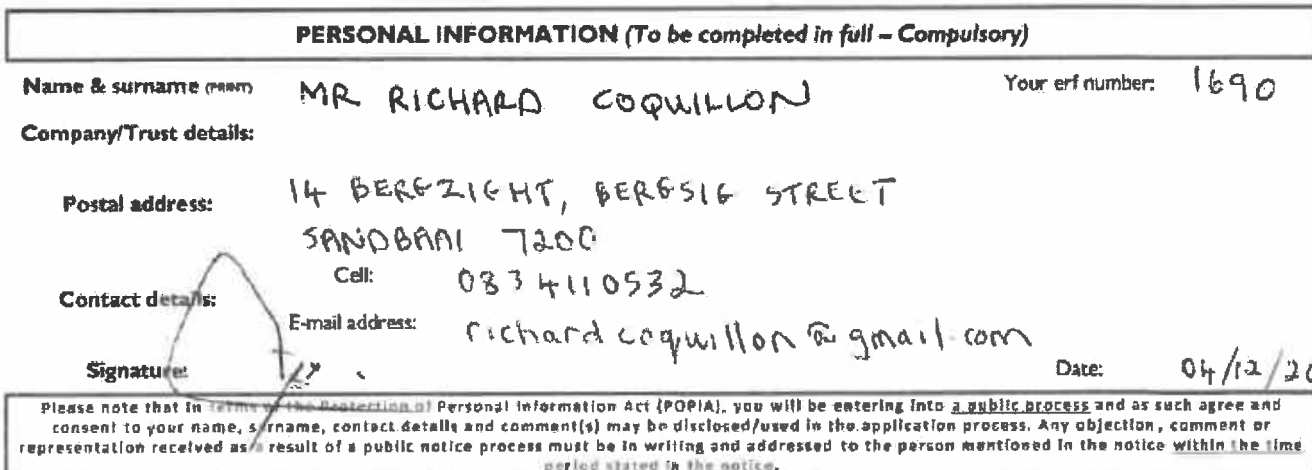 PERSONAL INFORMATION (To be completed in full – Compulsory)
Name & surname (PRINT) MR RICHARD COQUILLON Your erf number: 1690
Company/Trust details:
Postal address: 14 BERGZIGHT, BERGSIG STREET
SANDBAAI 7200
Contact details: Cell: 0834110532
E-mail address: richardcoquillon@gmail.com
Signature: Date: 04/12/20
Please note that in terms of the Protection of Personal Information Act (POPIA), you will be entering into a public process and as such agree and
consent to your name, surname, contact details and comment(s) may be disclosed/used in the application process. Any objection, comment or
representation received as a result of a public notice process must be in writing and addressed to the person mentioned in the notice within the time
period stated in the notice.